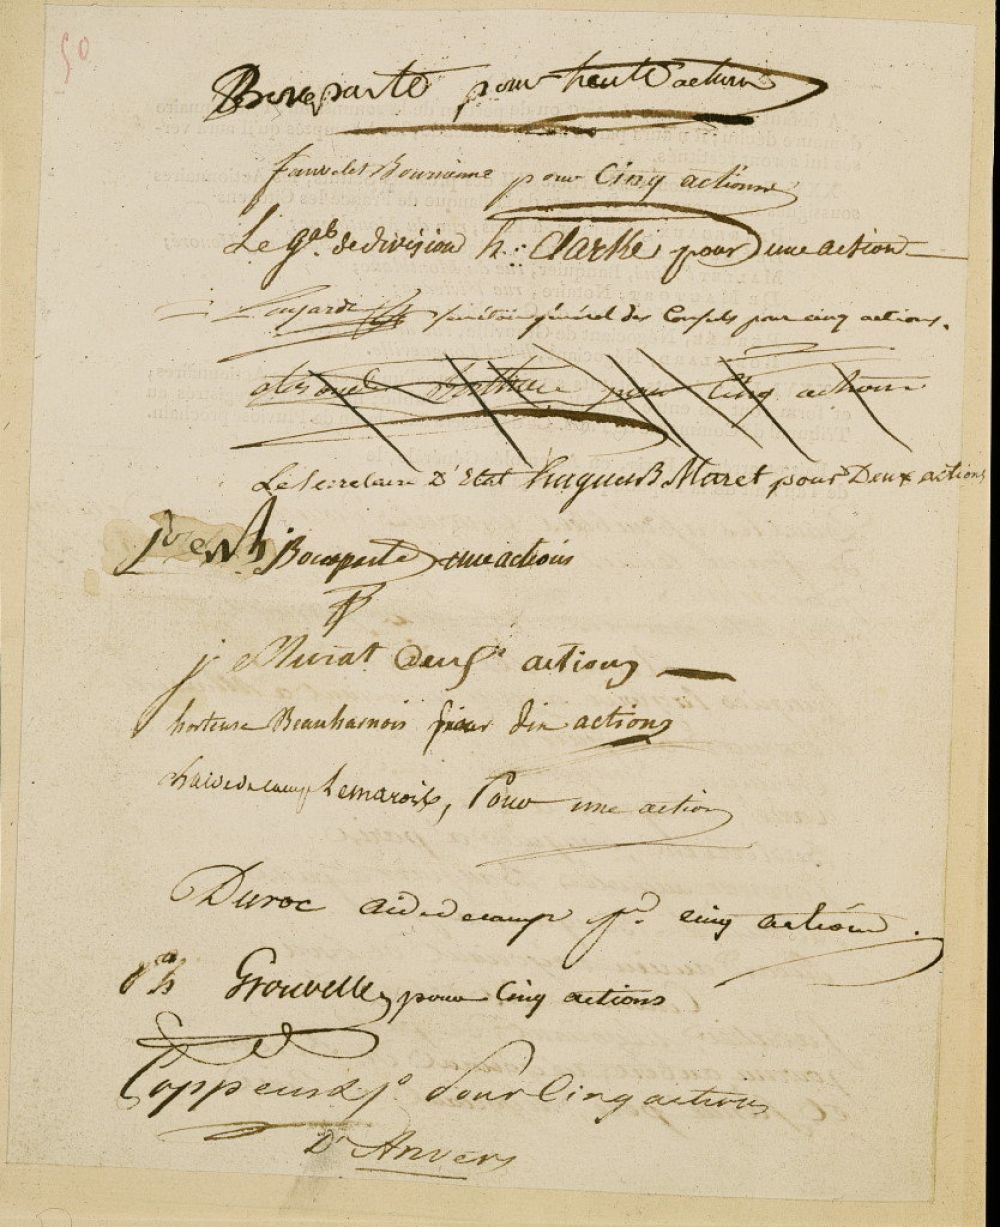 50
Bonaparte pour trente actions
fauvelet Bourrienne pour Cinq actions
Le gal de division h: Clarke pour une action
Lagarde secrétaire général des Consuls pour cinq actions.
pour Cinq actions
Le Secretaire D'Etat hugues B Maret pour Deux actions
Bonaparte une actions
j Murat deux actions
hortense Beauharnois pour dix actions
Lemarois, Pour une action
Duroc aide de camp pr. cinq actions.
Grouvelle pour Cinq actions
Coppens pour Cinq actions
D'Anvers